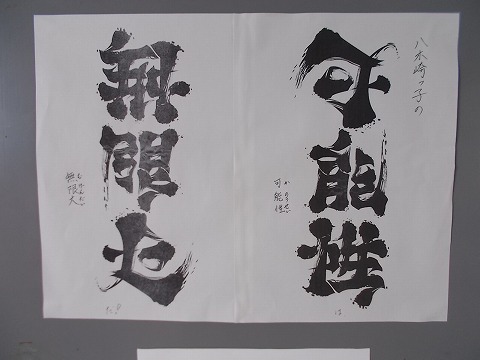 八木崎っ子の
可能性
かのうせい
可能性
は
無限大
むげんだい
無限大